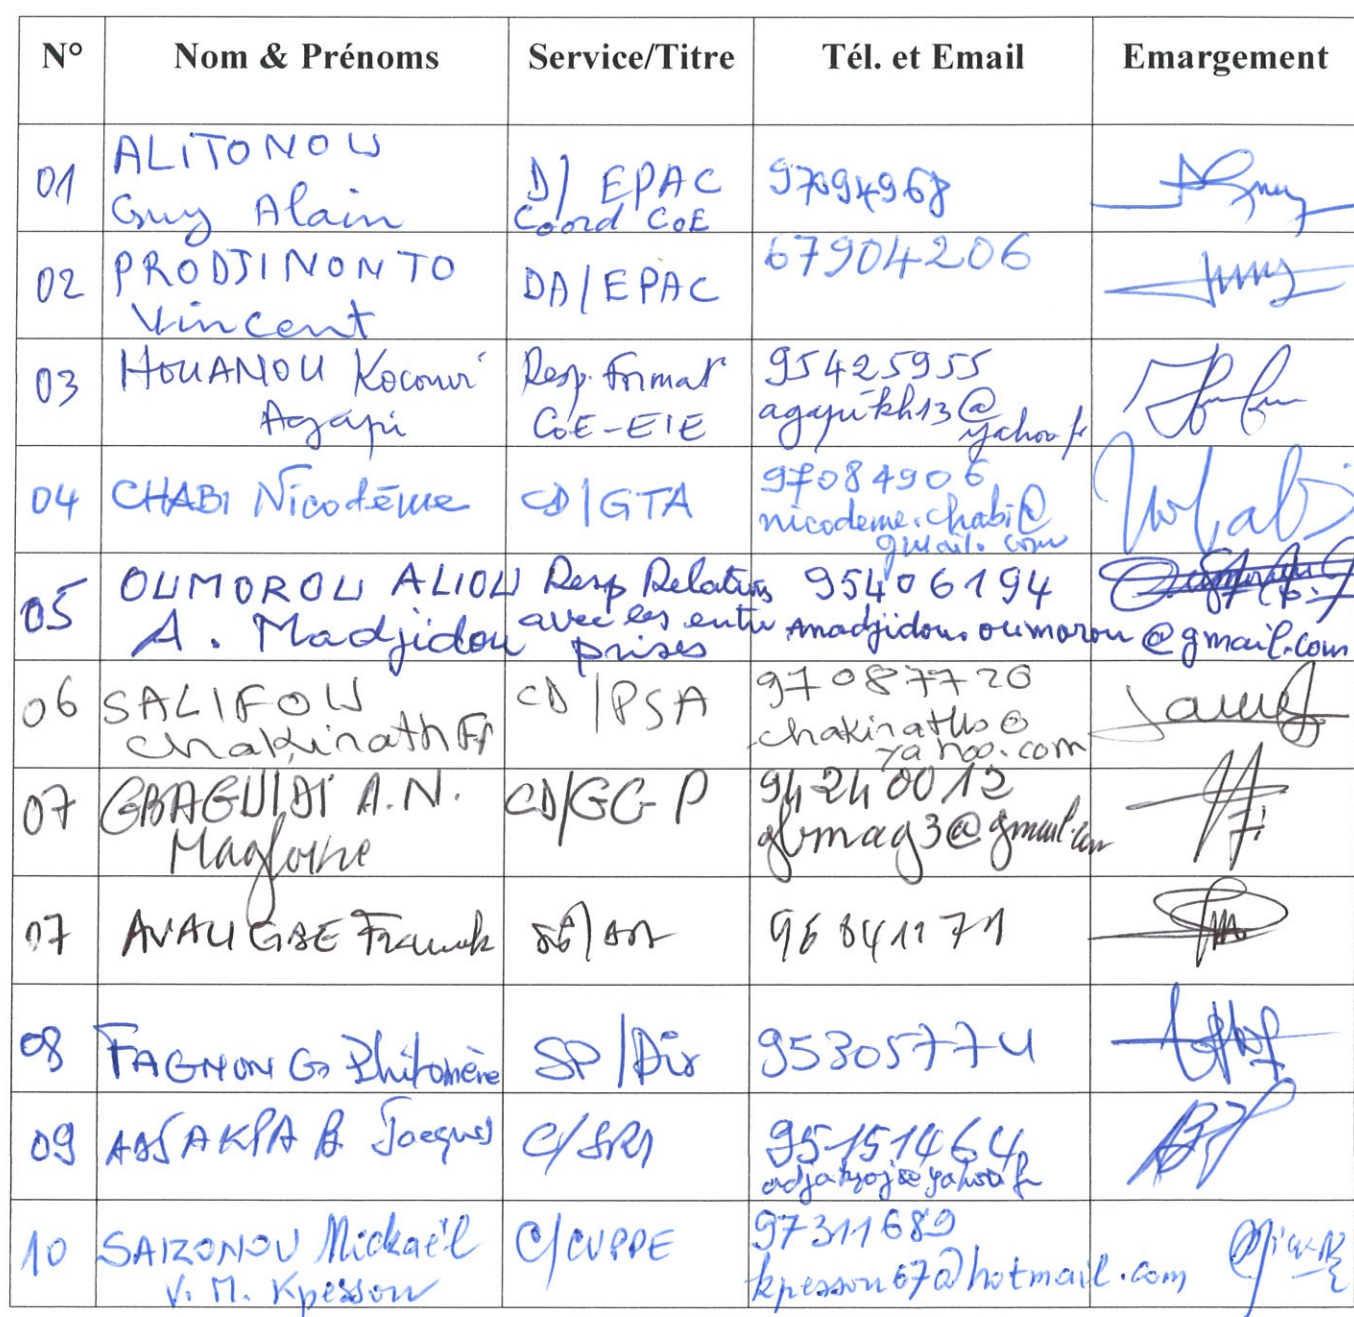 N° Nom & Prénoms Service/Titre Tél. et Email Emargement
01 ALITONOU Guy Alain D/ EPAC Coord CoE 97094968
02 PRODJINONTO Vincent DA/EPAC 67904206
03 HOUANOU Kocouvi Agapi Resp. format CoE-EIE 95425955 agapikh13@yahoo.fr
04 CHABI Nicodème CD/GTA 97084906 nicodeme.chabi@gmail.com
05 OUMOROU ALIOU A. Madjidou Resp Relations avec les entreprises 95406194 amadjidou.oumorou@gmail.com
06 SALIFOU Chakirath CD/PSA chakiraths@yahoo.com
07 GBAGUIDI A.N. Magloire CD/GC-P 94240012 gbmag3@gmail.com
07 Franck
08 FAGNON G. Philomène SP/Dir 95305774
09 Jacques 95151464
10 SAIZONOU Mickaël V. M. Kpesson 97311689 kpesson67@hotmail.com